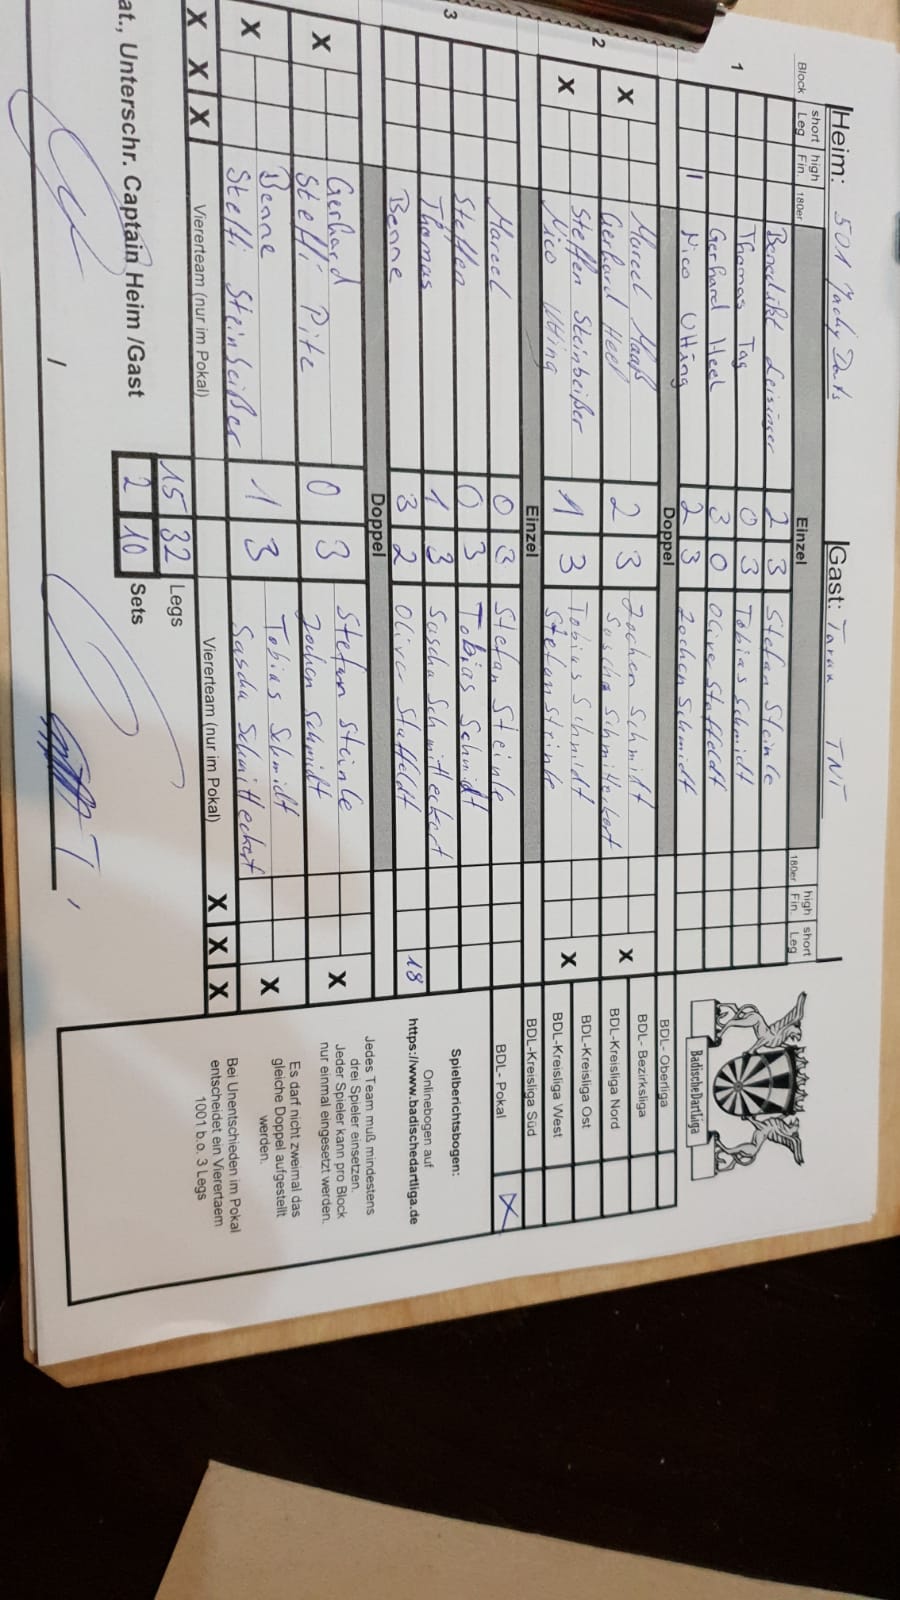 Heim: 501 Yachy Darts Gast: Taran TNT
Block short Leg high Fin. 180er Einzel 180er high Fin. short Leg
1 Benedikt Leisinger 2 3 Stefan Steinle
Thomas Tag 0 3 Tobias Schmidt
Gerhard Heel 3 0 Oliver Staffeldt
II Nico Utting 2 3 Jochen Schmidt
Doppel
2 X Marcel Maaß 2 3 Jochen Schmidt X
Gerhard Heel Sascha Schmitteckert
X Steffen Steinbeißer 1 3 Tobias Schmidt X
Nico Utting Stefan Steinle
Einzel
3 Marcel 0 3 Stefan Steinle
Steffen 0 3 Tobias Schmidt
Thomas 1 3 Sascha Schmitteckert
Benne 3 2 Oliver Staffeldt 18
Doppel
X Gerhard 0 3 Stefan Steinle X
Steffi Pite Jochen Schmidt
X Benne 1 3 Tobias Schmidt X
Steffi Steinbeißer Sascha Schmitteckert
X X X Viererteam (nur im Pokal) Viererteam (nur im Pokal) X X X
15 32 Legs
2 10 Sets
at., Unterschr. Captain Heim /Gast
BadischeDartLiga
BDL- Oberliga
BDL- Bezirksliga
BDL-Kreisliga Nord
BDL-Kreisliga Ost
BDL-Kreisliga West
BDL-Kreisliga Süd
BDL- Pokal X
Spielberichtsbogen:
Onlinebogen auf
https://www.badischedartliga.de
Jedes Team muß mindestens
drei Spieler einsetzen.
Jeder Spieler kann pro Block
nur einmal eingesetzt werden.
Es darf nicht zweimal das
gleiche Doppel aufgestellt
werden.
Bei Unentschieden im Pokal
entscheidet ein Vierertaem
1001 b.o. 3 Legs